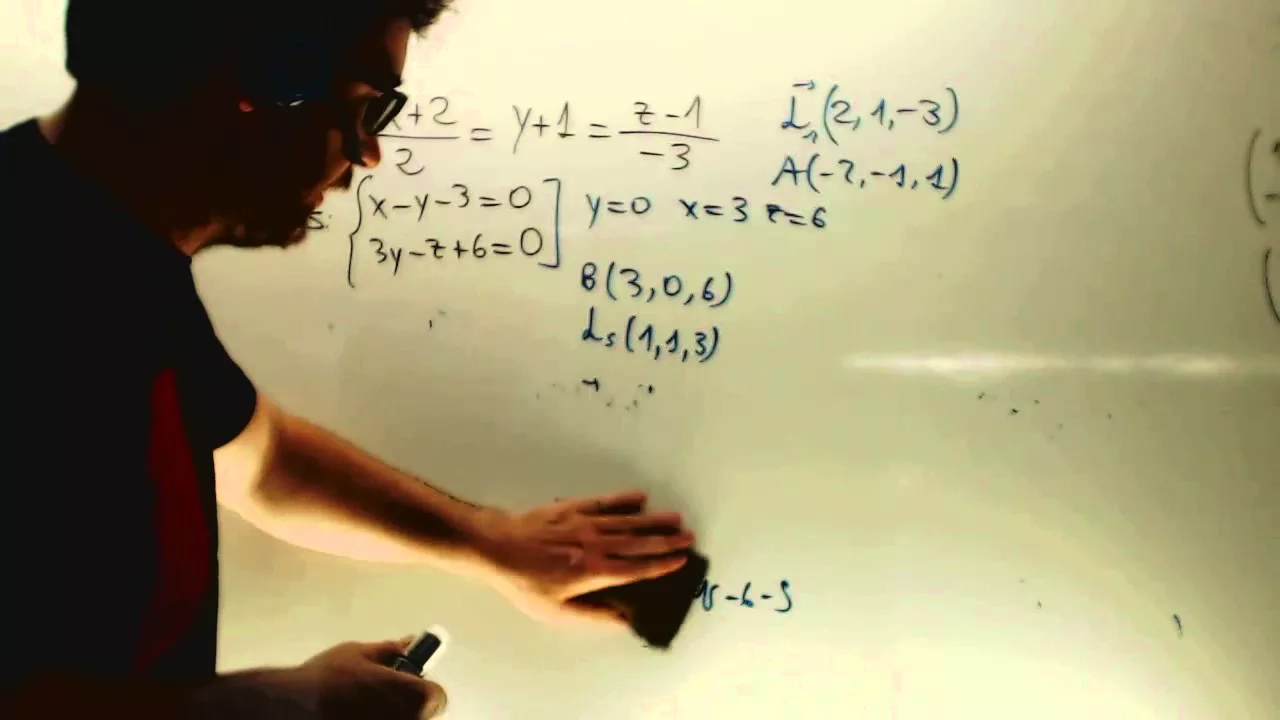 x+2/2 = y+1 = z-1/-3
L₁(2,1,-3)
A(-2,-1,1)
s: {x-y-3=0
3y-z+6=0] y=0 x=3 z=6
B(3,0,6)
Ls(1,1,3)
-6-9